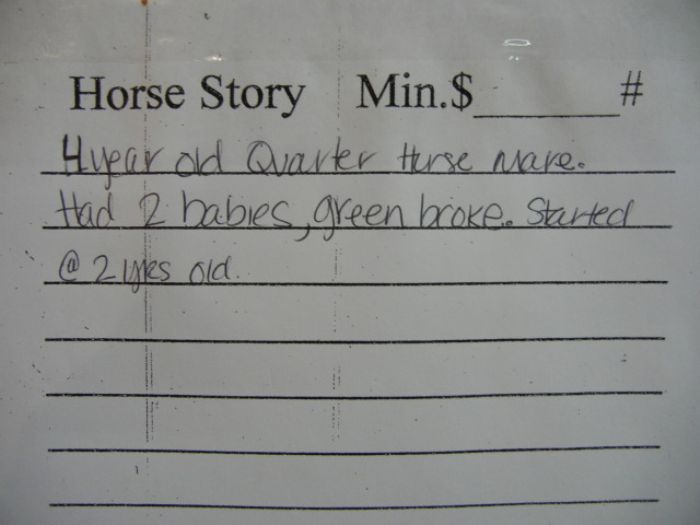 Horse Story Min.$______#
4 year old Quarter Horse mare.
Had 2 babies, green broke. Started
@ 2 yrs old.